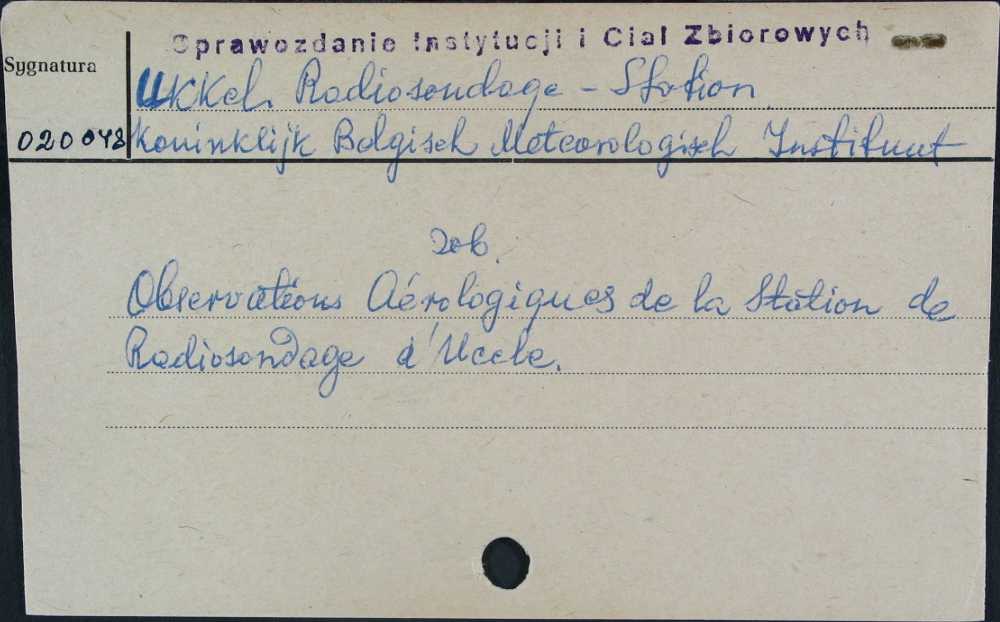 Sprawozdanie Instytucji i Ciał Zbiorowych
Sygnatura
Ukkel. Radiosondage - Station
020048 Koninklijk Belgisch Meteorologisch Instituut
zob.
Observations Aérologiques de la Station de
Radiosondage d'Uccle.